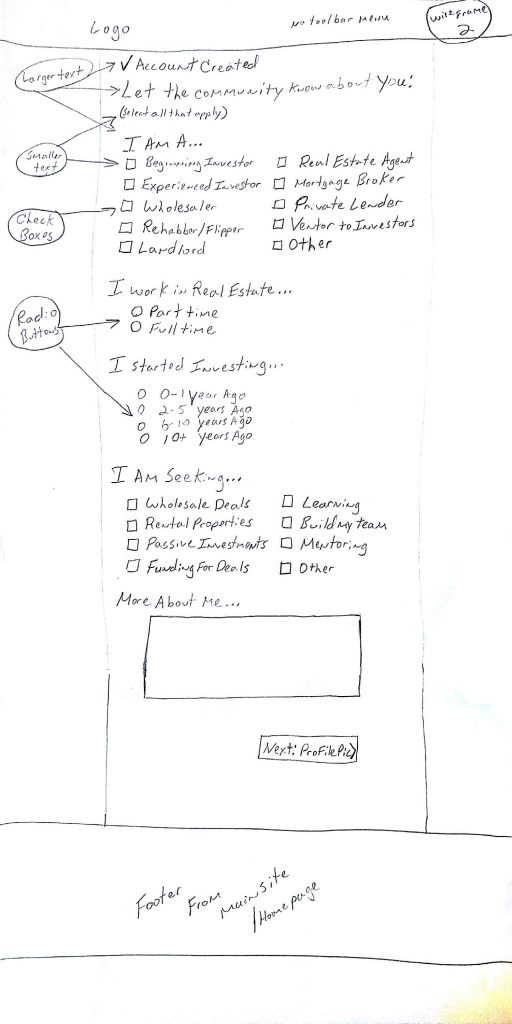 Logo
No toolbar Menu
Wire Frame 2
Larger text
✓ Account Created
Let the community know about You:
(Select all that apply)
I Am A...
Smaller text
Beginning Investor
Real Estate Agent
Experienced Investor
Mortgage Broker
Check Boxes
Wholesaler
Private Lender
Rehabber/Flipper
Ventor to Investors
Landlord
Other
I work in Real Estate...
Radio Buttons
Part time
Full time
I started Investing...
0-1 Year Ago
2-5 years Ago
6-10 years Ago
10+ years Ago
I Am Seeking...
Wholesale Deals
Learning
Rental Properties
Build my team
Passive Investments
Mentoring
Funding For Deals
Other
More About Me...
Next: Profile Pic>
Footer From Main Site
/Homepage